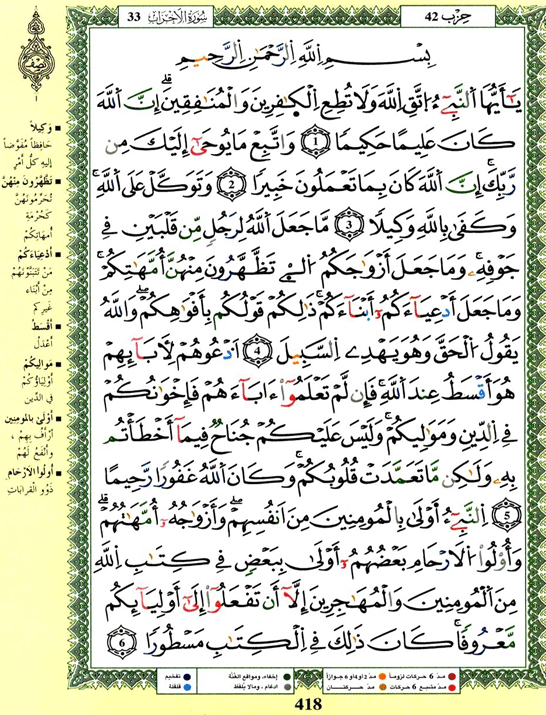 حِزْب 42
سُورَةُ الأَحْزَاب 33
بِسْمِ اِللَّهِ اِلرَّحْمَٰنِ اِلرَّحِيمِ
يَٰٓأَيُّهَا اَلنَّبِيٓءُ اتَّقِ اِللَّهَ وَلَا تُطِعِ اِلْكَٰفِرِينَ وَالْمُنَٰفِقِينَۖ إِنَّ اَللَّهَ
كَانَ عَلِيمًا حَكِيمًا 1 وَاتَّبِعْ مَا يُوحَىٰٓ إِلَيْكَ مِن
رَّبِّكَۖ إِنَّ اَللَّهَ كَانَ بِمَا تَعْمَلُونَ خَبِيرًا 2 وَتَوَكَّلْ عَلَى اَللَّهِۖ
وَكَفَىٰ بِاللَّهِ وَكِيلًا 3 مَّا جَعَلَ اَللَّهُ لِرَجُلٍ مِّن قَلْبَيْنِ فِي
جَوْفِهِۦۖ وَمَا جَعَلَ أَزْوَٰجَكُمُ اُلَّٰٓـِٔے تَظَّهَّرُونَ مِنْهُنَّ أُمَّهَٰتِكُمْۖ
وَمَا جَعَلَ أَدْعِيَآءَكُمُۥٓ أَبْنَآءَكُمْۖ ذَٰلِكُمْ قَوْلُكُم بِأَفْوَٰهِكُمْۖ وَاللَّهُ
يَقُولُ اُلْحَقَّ وَهُوَ يَهْدِے اِلسَّبِيلَ 4 اَدْعُوهُمْ لِأٓبَآئِهِمْ
هُوَ أَقْسَطُ عِندَ اَللَّهِۖ فَإِن لَّمْ تَعْلَمُوٓاْ ءَابَآءَهُمْ فَإِخْوَٰنُكُمْ
فِي اِلدِّينِ وَمَوَٰلِيكُمْۖ وَلَيْسَ عَلَيْكُمْ جُنَاحٌ فِيمَآ أَخْطَأْتُم
بِهِۦ وَلَٰكِن مَّا تَعَمَّدَتْ قُلُوبُكُمْۖ وَكَانَ اَللَّهُ غَفُورًا رَّحِيمًا
5 اِلنَّبِيٓءُ أَوْلَىٰ بِالْمُومِنِينَ مِنَ اَنفُسِهِمْۖ وَأَزْوَٰجُهُۥٓ أُمَّهَٰتُهُمْۖ
وَأُوْلُواْ اُلَارْحَامِ بَعْضُهُمُۥٓ أَوْلَىٰ بِبَعْضٍ فِي كِتَٰبِ اِللَّهِ
مِنَ اَلْمُومِنِينَ وَالْمُهَٰجِرِينَ إِلَّآ أَن تَفْعَلُوٓاْ إِلَىٰٓ أَوْلِيَآئِكُم
مَّعْرُوفًاۖ كَانَ ذَٰلِكَ فِي اِلْكِتَٰبِ مَسْطُورًا 6
نصف
■ وَكِيلاً
حَافِظاً مُفَوَّضاً
إِلَيْهِ كُلُّ أَمْرٍ
■ تَظَّهَّرُونَ مِنْهُنَّ
تُحَرِّمُونَهُنَّ
كَحُرْمَةِ
أُمَّهَاتِكُمْ
■ أَدْعِيَاءَكُمْ
مَنْ تَتَبَنَّوْنَهُمْ
مِنْ أَبْنَاءِ
غَيْرِكُمْ
■ أَقْسَطُ
أَعْدَلُ
■ مَوَالِيكُمْ
أَوْلِيَاؤُكُمْ
فِي الدِّينِ
■ أَوْلَىٰ بِالْمُومِنِينَ
أَرْأَفُ بِهِمْ ،
وَأَنْفَعُ لَهُمْ
■ أُولُوا الأَرْحَامِ
ذَوُو القَرَابَاتِ
مدّ 6 حركات لزوماً مدّ 2 أو 4 أو 6 جوازاً إخفاء، ومواقع الغُنَّة تفخيم
مدّ مشبع 6 حركات مدّ حركتان إدغام، وما لا يُلفَظ قلقلة
418